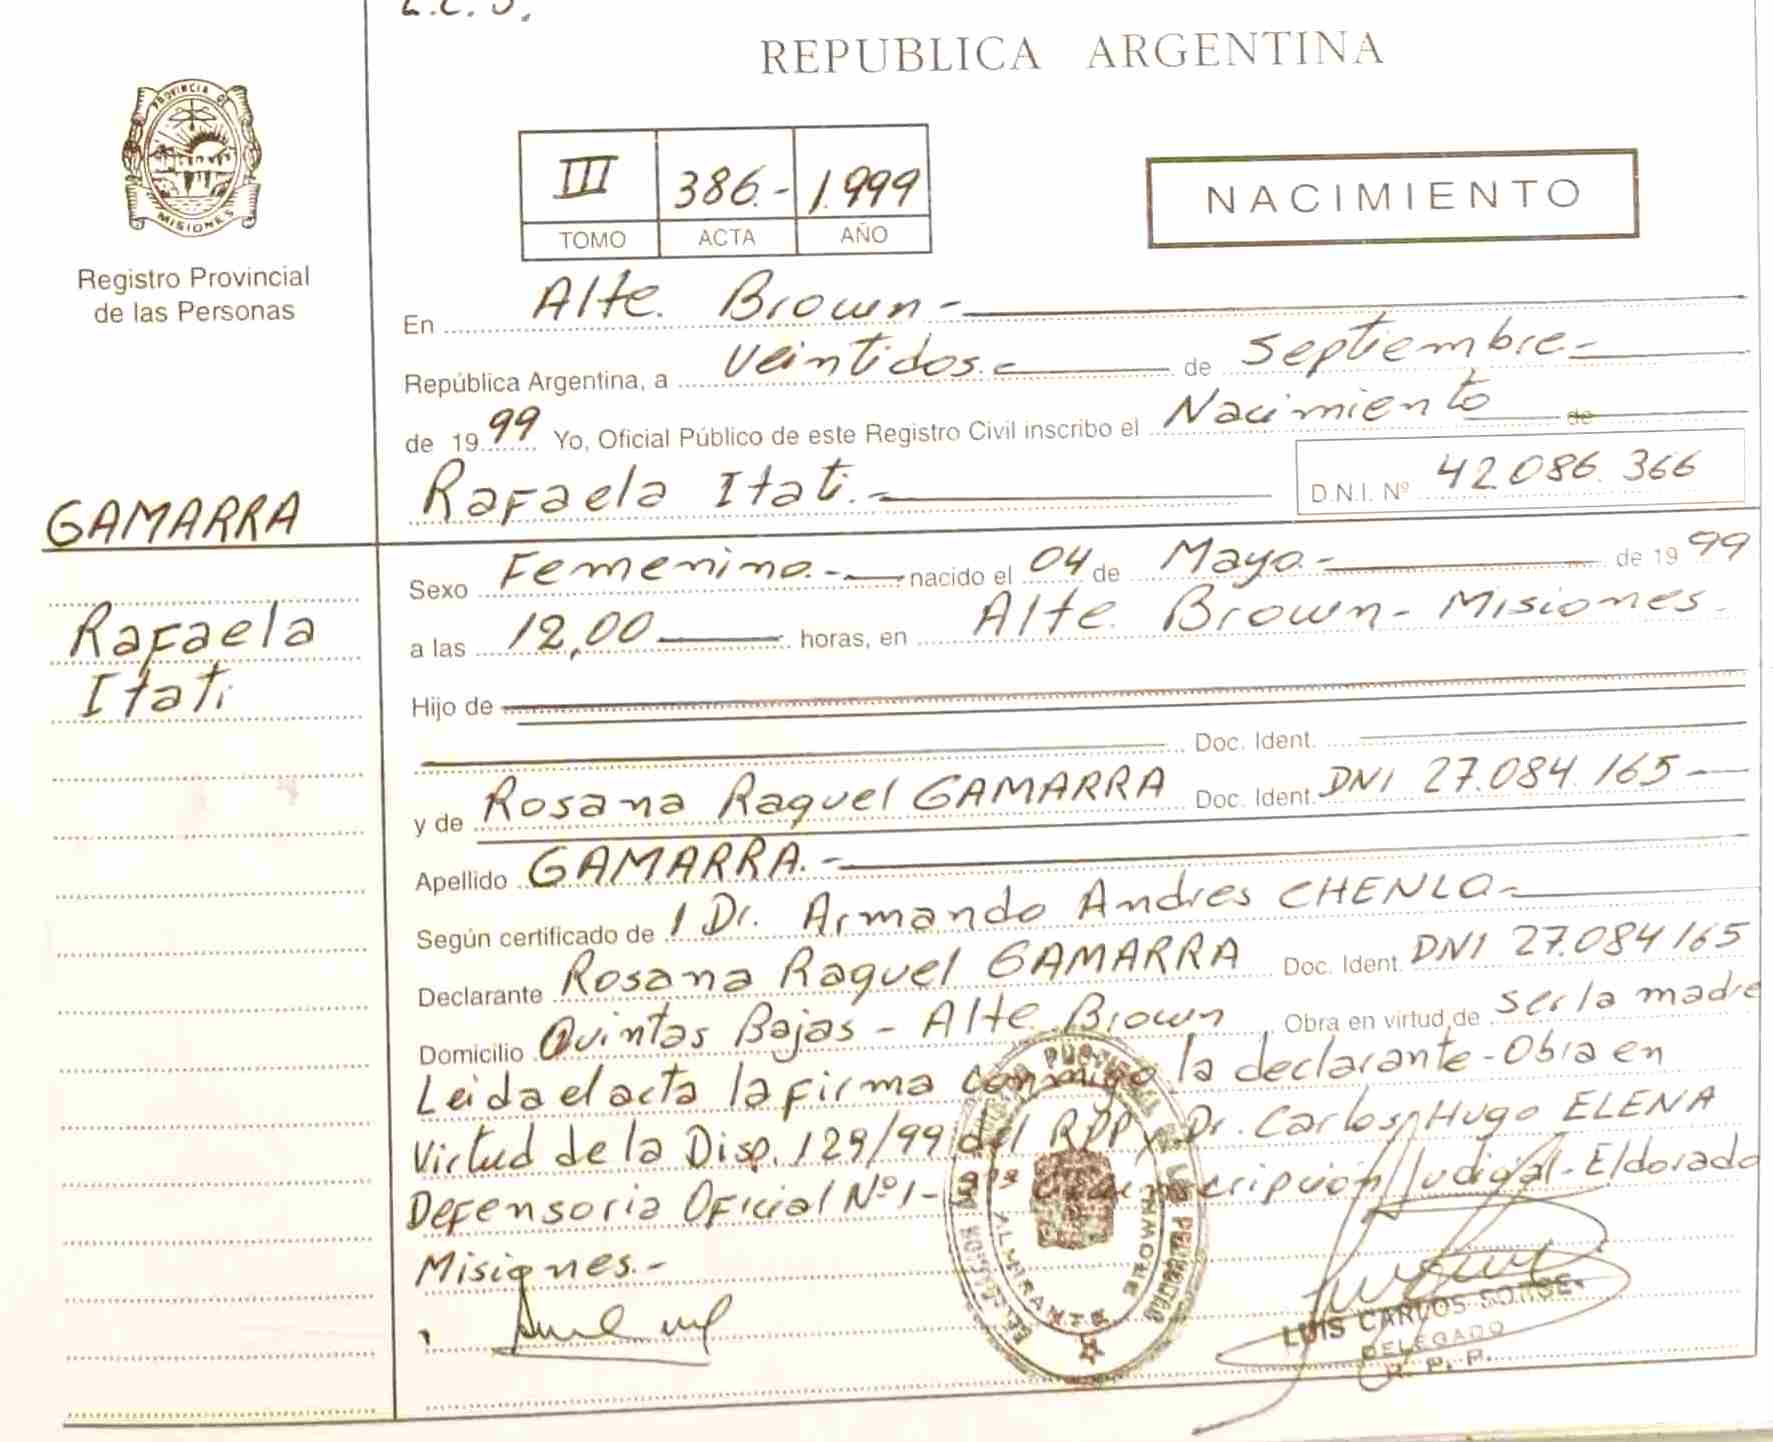 L.C.S.
REPUBLICA ARGENTINA
PROVINCIA DE
MISIONES
Registro Provincial
de las Personas
III 386.- 1.999
TOMO ACTA AÑO
NACIMIENTO
En Alte. Brown.-
República Argentina, a Veintidos.- de Septiembre.-
de 1999 Yo, Oficial Público de este Registro Civil inscribo el Nacimiento de
Rafaela Itati.- D.N.I. Nº 42.086.366
GAMARRA
Rafaela
Itati
Sexo Femenino.- nacido el 04 de Mayo.- de 1999
a las 12,00 horas, en Alte. Brown - Misiones.
Hijo de
Doc. Ident.
y de Rosana Raquel GAMARRA Doc. Ident. DNI 27.084.165
Apellido GAMARRA.-
Según certificado de 1 Dr. Armando Andres CHENLO-
Declarante Rosana Raquel GAMARRA Doc. Ident. DNI 27.084165
Domicilio Quintas Bajas - Alte. Brown Obra en virtud de ser la madre
Leida el acta la firma conmigo la declarante - Obra en
Virtud de la Disp. 129/99 del RPP y Dr. Carlos Hugo ELENA
Defensoria Oficial Nº 1 - Judicial - Eldorado
Misiones.-
ALMIRANTE BROWN
LUIS CARLOS
DELEGADO
R. P. P.